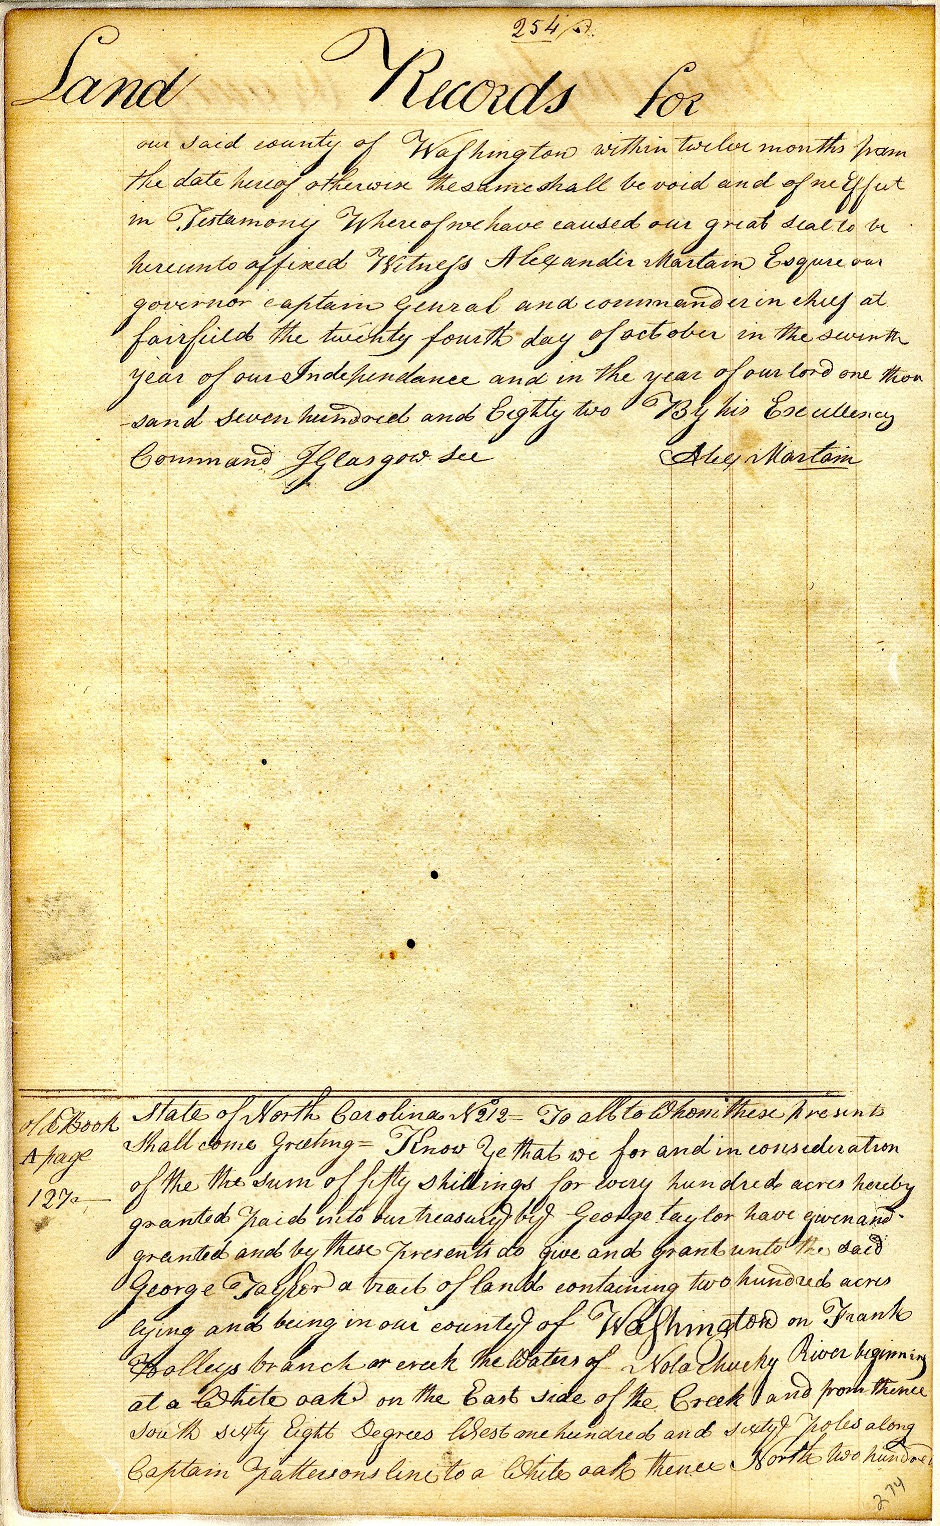 254
Land Records for
our said county of Washington within twelve months from
the date hereof otherwise the same shall be void and of no Effect
in Testamony Whereof we have caused our great seal to be
hereunto affixed Witness Alexander Martain Esqure our
governor captain Genral and commander in cheif at
fairfield the twenty fourth day of october in the seventh
year of our Independance and in the year of our lord one thou
sand seven hundred and Eighty two By his Excellency
Command J Glasgow See Alex Martain
old Book
A page
127
State of North Carolina No 212 = To all to Whom these present
Shall come Greeting = Know Ye that we for and in consideration
of the the sum of fifty shillings for every hundred acres hereby
granted paid into our treasury by George taylor have given and
granted and by these presents do give and grant unto the said
George Taylor a tract of land containing two hundred acres
lying and being in our county of Washington on Frank
Holleys branch or creek the Waters of Nola Chucky River beginning
at a White oak on the East side of the Creek and from thence
South sixty Eight Degrees West one hundred and sixty poles along
Captain Pattersons line to a White oak thence North two hundred
274